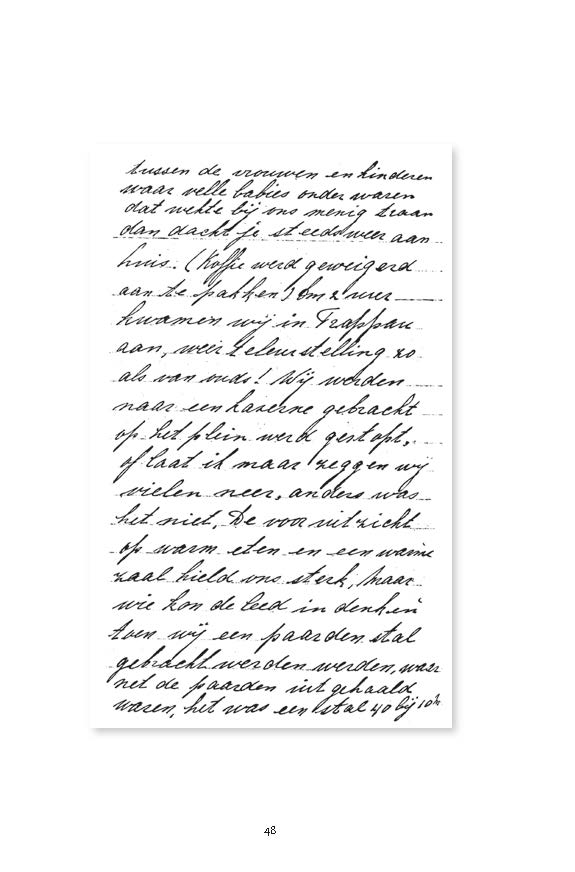 tussen de vrouwen en kinderen
waar velle babies onder waren
dat wekte bij ons menig traan
dan dacht je steeds weer aan
huis. (Koffie werd geweigerd
aan te pakken) Om 2 uur
kwamen wij in Trappau
aan, weer teleurstelling zo
als van ouds! Wij werden
naar een kaserne gebracht
op het plein werd gestopt,
of laat ik maar zeggen wij
vielen neer, anders was
het niet, De voor uitzicht
op warm eten en een warme
zaal hield ons sterk, maar
wie kon de leed in denken
toen wij een paarden stal
gebracht werden werden, waar
net de paarden uit gehaald
waren, het was een stal 40 bij 10
48